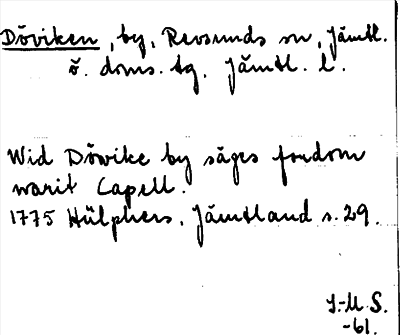 Döviken, by, Revsunds sn, Jämtl.
ö. doms. tg. Jämtl. l.
Wid Döwike by säges fordom
warit Capell.
1775 Hülphers, Jämtland s. 29.
I.-M.S.
-61.